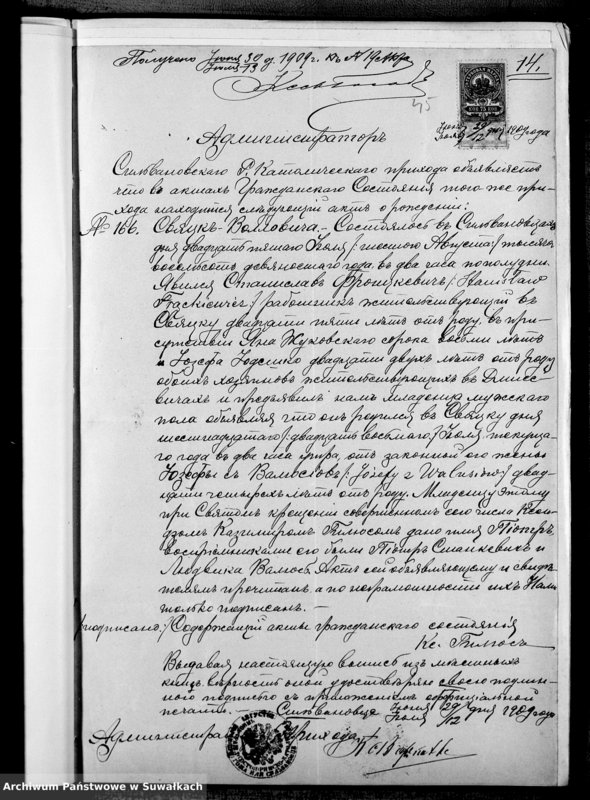 Получено Іюня 30 / Іюля 13 д. 1909 г. къ
14.
45
Іюня 29 / Іюля 12 дня 1909 года
Администраторъ
Сильвановскаго Р. Католическаго прихода объявляетъ
что въ актахъ Гражданскаго Состоянія того-же при-
хода находится слѣдующій актъ о рожденіи:
№ 166. Свяцкъ-Воловича. - Состоялось въ Сильвановцахъ
дня двадцать пятаго Іюля /: шестого Августа :/ тысяча
восемьсотъ девяностаго года въ два часа пополудни.
Явился Станиславъ Фронцкевичъ /: Stanisław
Frąckiewicz :/ работникъ жительствующій въ
Свяцку двадцати пяти лѣтъ отъ роду, въ при-
сутствіи Яна Жуковскаго сорока восьми лѣтъ
и Іозефа двадцати двухъ лѣтъ отъ роду
обоихъ хозяевъ жительствующихъ въ
и предъявилъ намъ младенца мужескаго
пола объявляя что онъ родился въ Свяцку дня
шестнадцатаго /: двадцать восьмого :/ Іюля текуща-
го года въ два часа утра, отъ законной его жены
Іозефы съ Валюсовъ /: Józefy z Walusiów :/ двад-
цати четырехъ лѣтъ отъ роду. Младенцу этому
при Святомъ крещеніи совершенномъ сего числа Ксен-
дзомъ Казимиромъ дано имя Піотръ,
воспріемниками его были Піотръ Станкевичъ и
Людвика Валюсъ. Актъ сей объявляющему и свидѣ-
телямъ прочитанъ, а по неграмотности ихъ Нами
только подписанъ. -
/подписано:/ Содержащій акты гражданскаго состоянія
Кс.
Выдавая настоящую выпись изъ метрическихъ
книгъ вѣрность оной удостовѣряю своею подлин-
ною подписью съ приложеніемъ оффиціальной
печати. - Сильвановце Іюня 29 / Іюля 12 дня 1909 года
Администраторъ Прихода
Archiwum Państwowe w Suwałkach